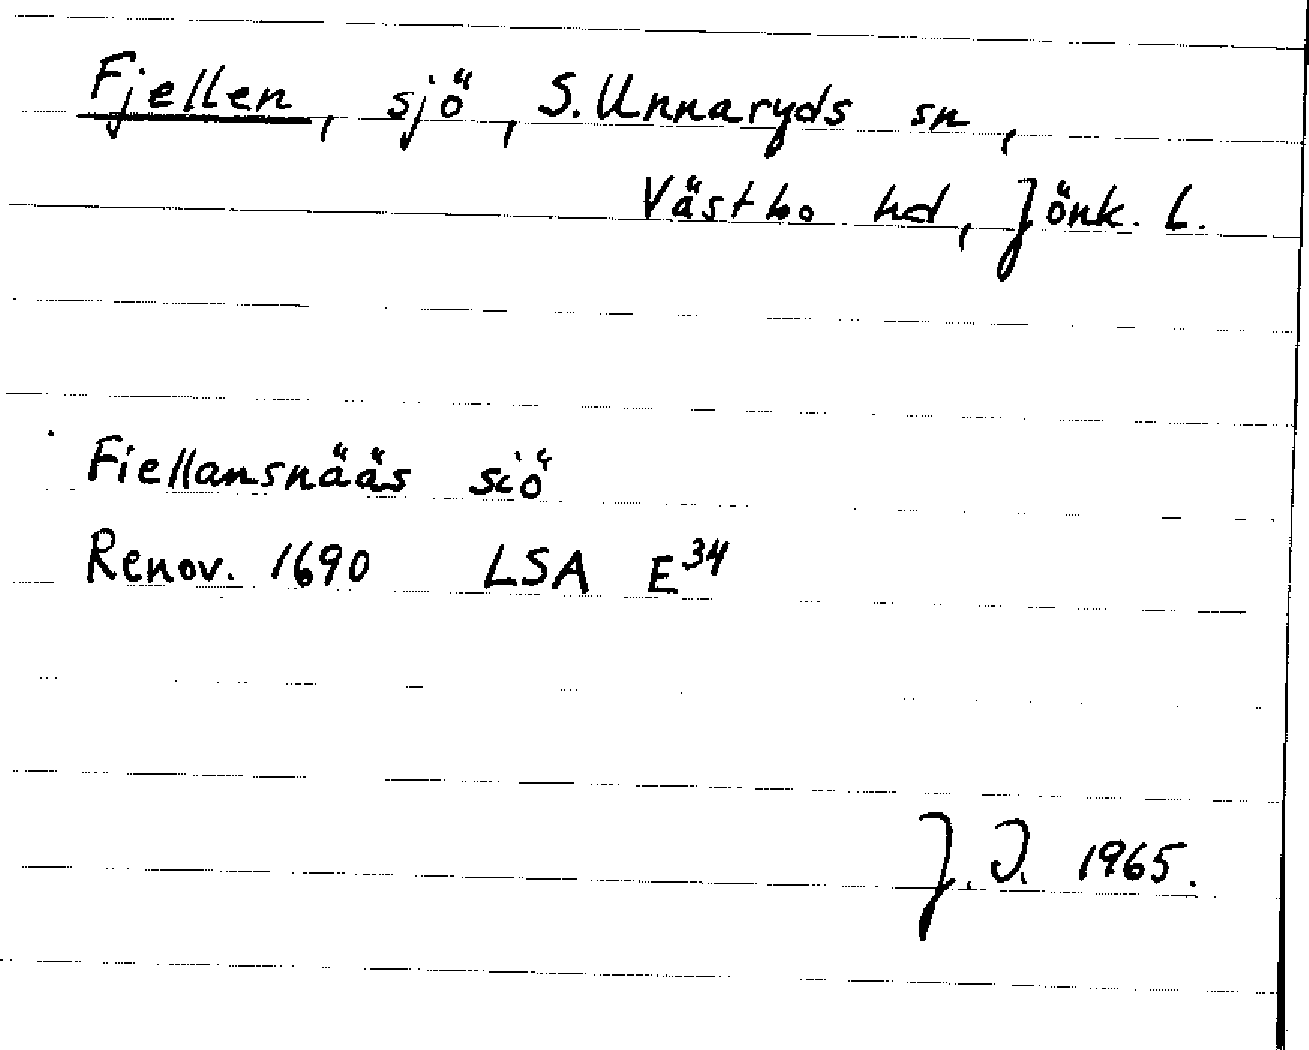 Fjellen, sjö, S. Unnaryds sn,
Västbo hd, Jönk. L.
Fiellansnääs siö
Renov. 1690 LSA E³⁴
J. I. 1965.